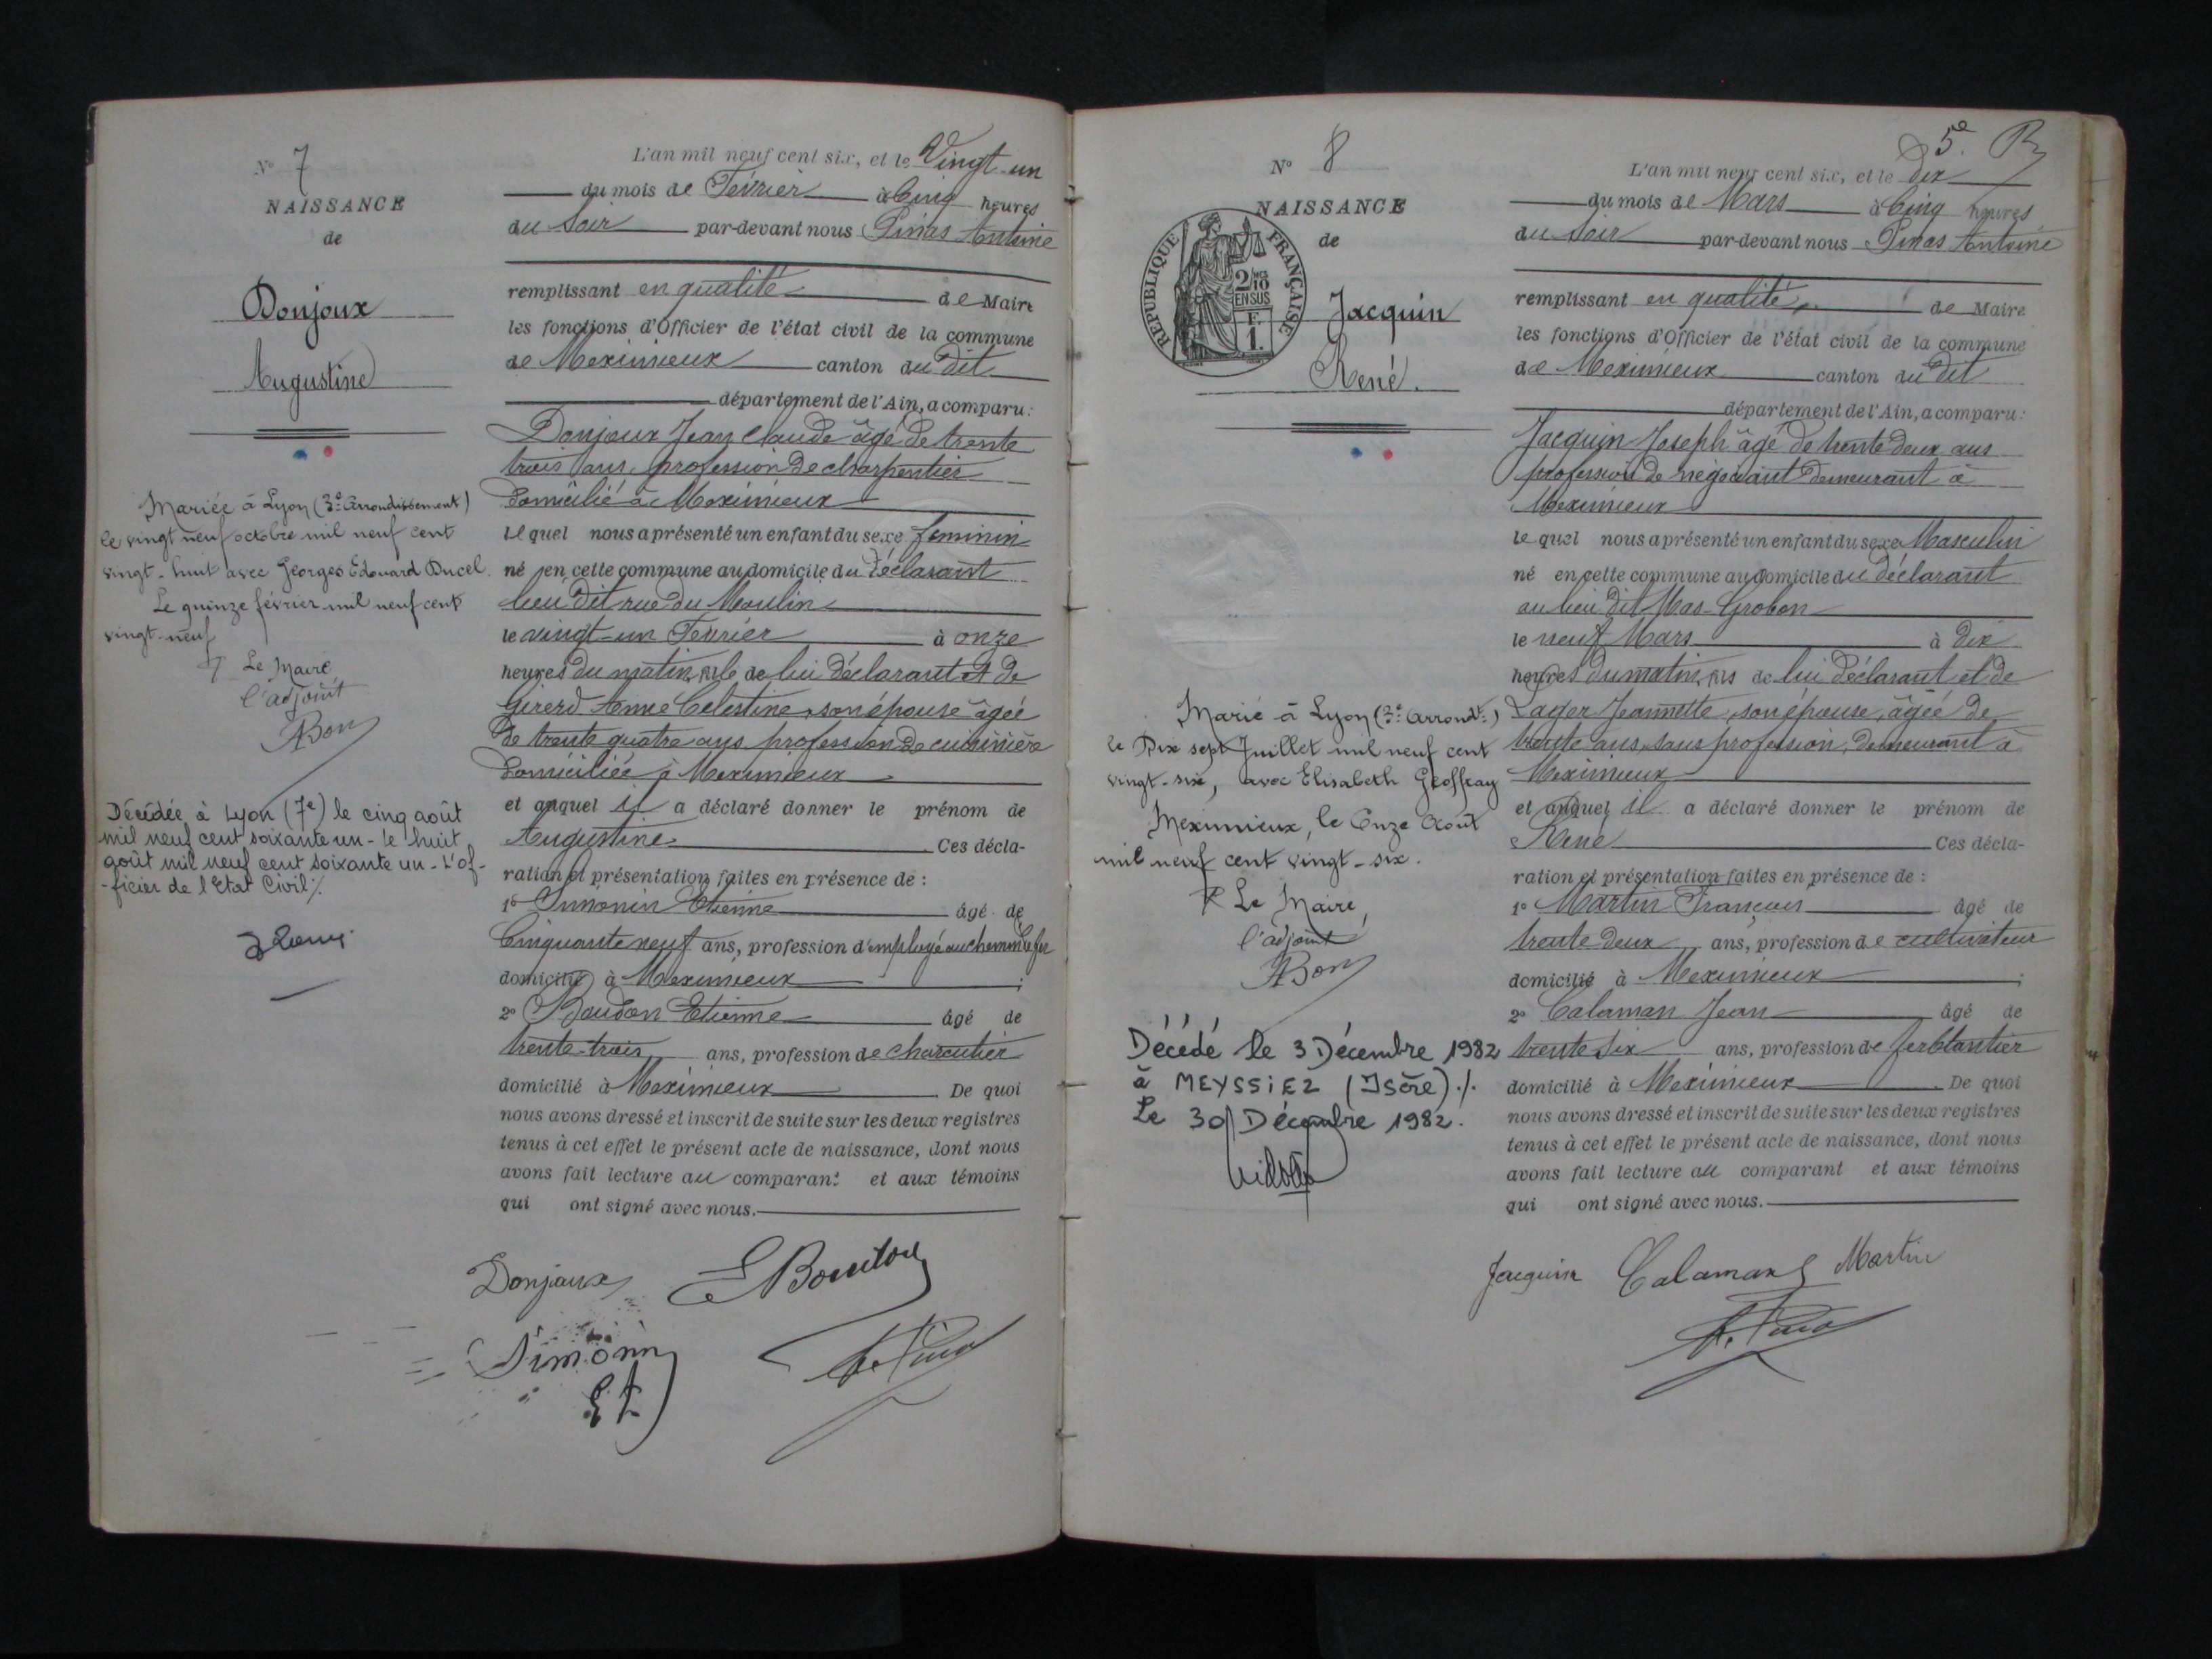 N° 7
NAISSANCE
de
Donjoux
Augustine
Mariée à Lyon (3e Arrondissement)
le vingt neuf octobre mil neuf cent
vingt-huit avec Georges Edouard Ducel.
Le quinze février mil neuf cent
vingt-neuf
Le Maire
l'adjoint
ABon
Décédée à Lyon (7e) le cinq août
mil neuf cent soixante un - le huit
août mil neuf cent soixante un - L'of-
-ficier de l'Etat Civil ./.
L'an mil neuf cent six, et le Vingt-un
du mois de Février à Cinq heures
du Soir par-devant nous Pinas Antoine
remplissant en qualité de Maire
les fonctions d'Officier de l'état civil de la commune
de Meximieux canton du dit
département de l'Ain, a comparu :
Donjoux Jean Claude âgé de trente
trois ans, profession de charpentier
domicilié à Meximieux
lequel nous a présenté un enfant du sexe féminin
né en cette commune au domicile du déclarant
lieu dit rue du Moulin
le vingt-un Février à onze
heures du matin, fille de lui déclarant et de
Girerd Anne Célestine, son épouse âgée
de trente quatre ans profession de cuisinière
domiciliée à Meximieux
et auquel il a déclaré donner le prénom de
Augustine Ces décla-
ration et présentation faites en présence de :
1° Simonin Etienne âgé de
Cinquante neuf ans, profession d'employé au chemin de fer
domicilié à Meximieux ;
2° Boudon Etienne âgé de
trente-trois ans, profession de charcutier
domicilié à Meximieux. De quoi
nous avons dressé et inscrit de suite sur les deux registres
tenus à cet effet le présent acte de naissance, dont nous
avons fait lecture au comparant et aux témoins
qui ont signé avec nous.
Donjoux E Boudon
Simonin
Et
5e
N° 8
NAISSANCE
de
REPUBLIQUE FRANÇAISE
2/10 EN SUS
F.
1.
Jacquin
René.
Marié à Lyon (3e Arrondt)
le Dix sept Juillet mil neuf cent
vingt-six, avec Elisabeth Geoffray
Meximieux, le Onze Août
mil neuf cent vingt-six.
Le Maire,
l'adjoint
ABon
Décédé le 3 Décembre 1982
à MEYSSIEZ (Isère) ./.
Le 30 Décembre 1982.
L'an mil neuf cent six, et le dix
du mois de Mars à Cinq heures
du Soir par-devant nous Pinas Antoine
remplissant en qualité de Maire
les fonctions d'Officier de l'état civil de la commune
de Meximieux canton du dit
département de l'Ain, a comparu :
Jacquin Joseph âgé de trente deux ans
profession de négociant demeurant à
Meximieux
lequel nous a présenté un enfant du sexe Masculin
né en cette commune au domicile du déclarant
au lieu dit Mas-Grobon
le neuf Mars à dix
heures du matin, fils de lui déclarant et de
Lager Jeannette, son épouse, âgée de
trente ans, sans profession, demeurant à
Meximieux
et auquel il a déclaré donner le prénom de
René Ces décla-
ration et présentation faites en présence de :
1° Martin François âgé de
trente deux ans, profession de cultivateur
domicilié à Meximieux ;
2° Calaman Jean âgé de
trente six ans, profession de ferblantier
domicilié à Meximieux. De quoi
nous avons dressé et inscrit de suite sur les deux registres
tenus à cet effet le présent acte de naissance, dont nous
avons fait lecture au comparant et aux témoins
qui ont signé avec nous.
Jacquin Calaman J Martin